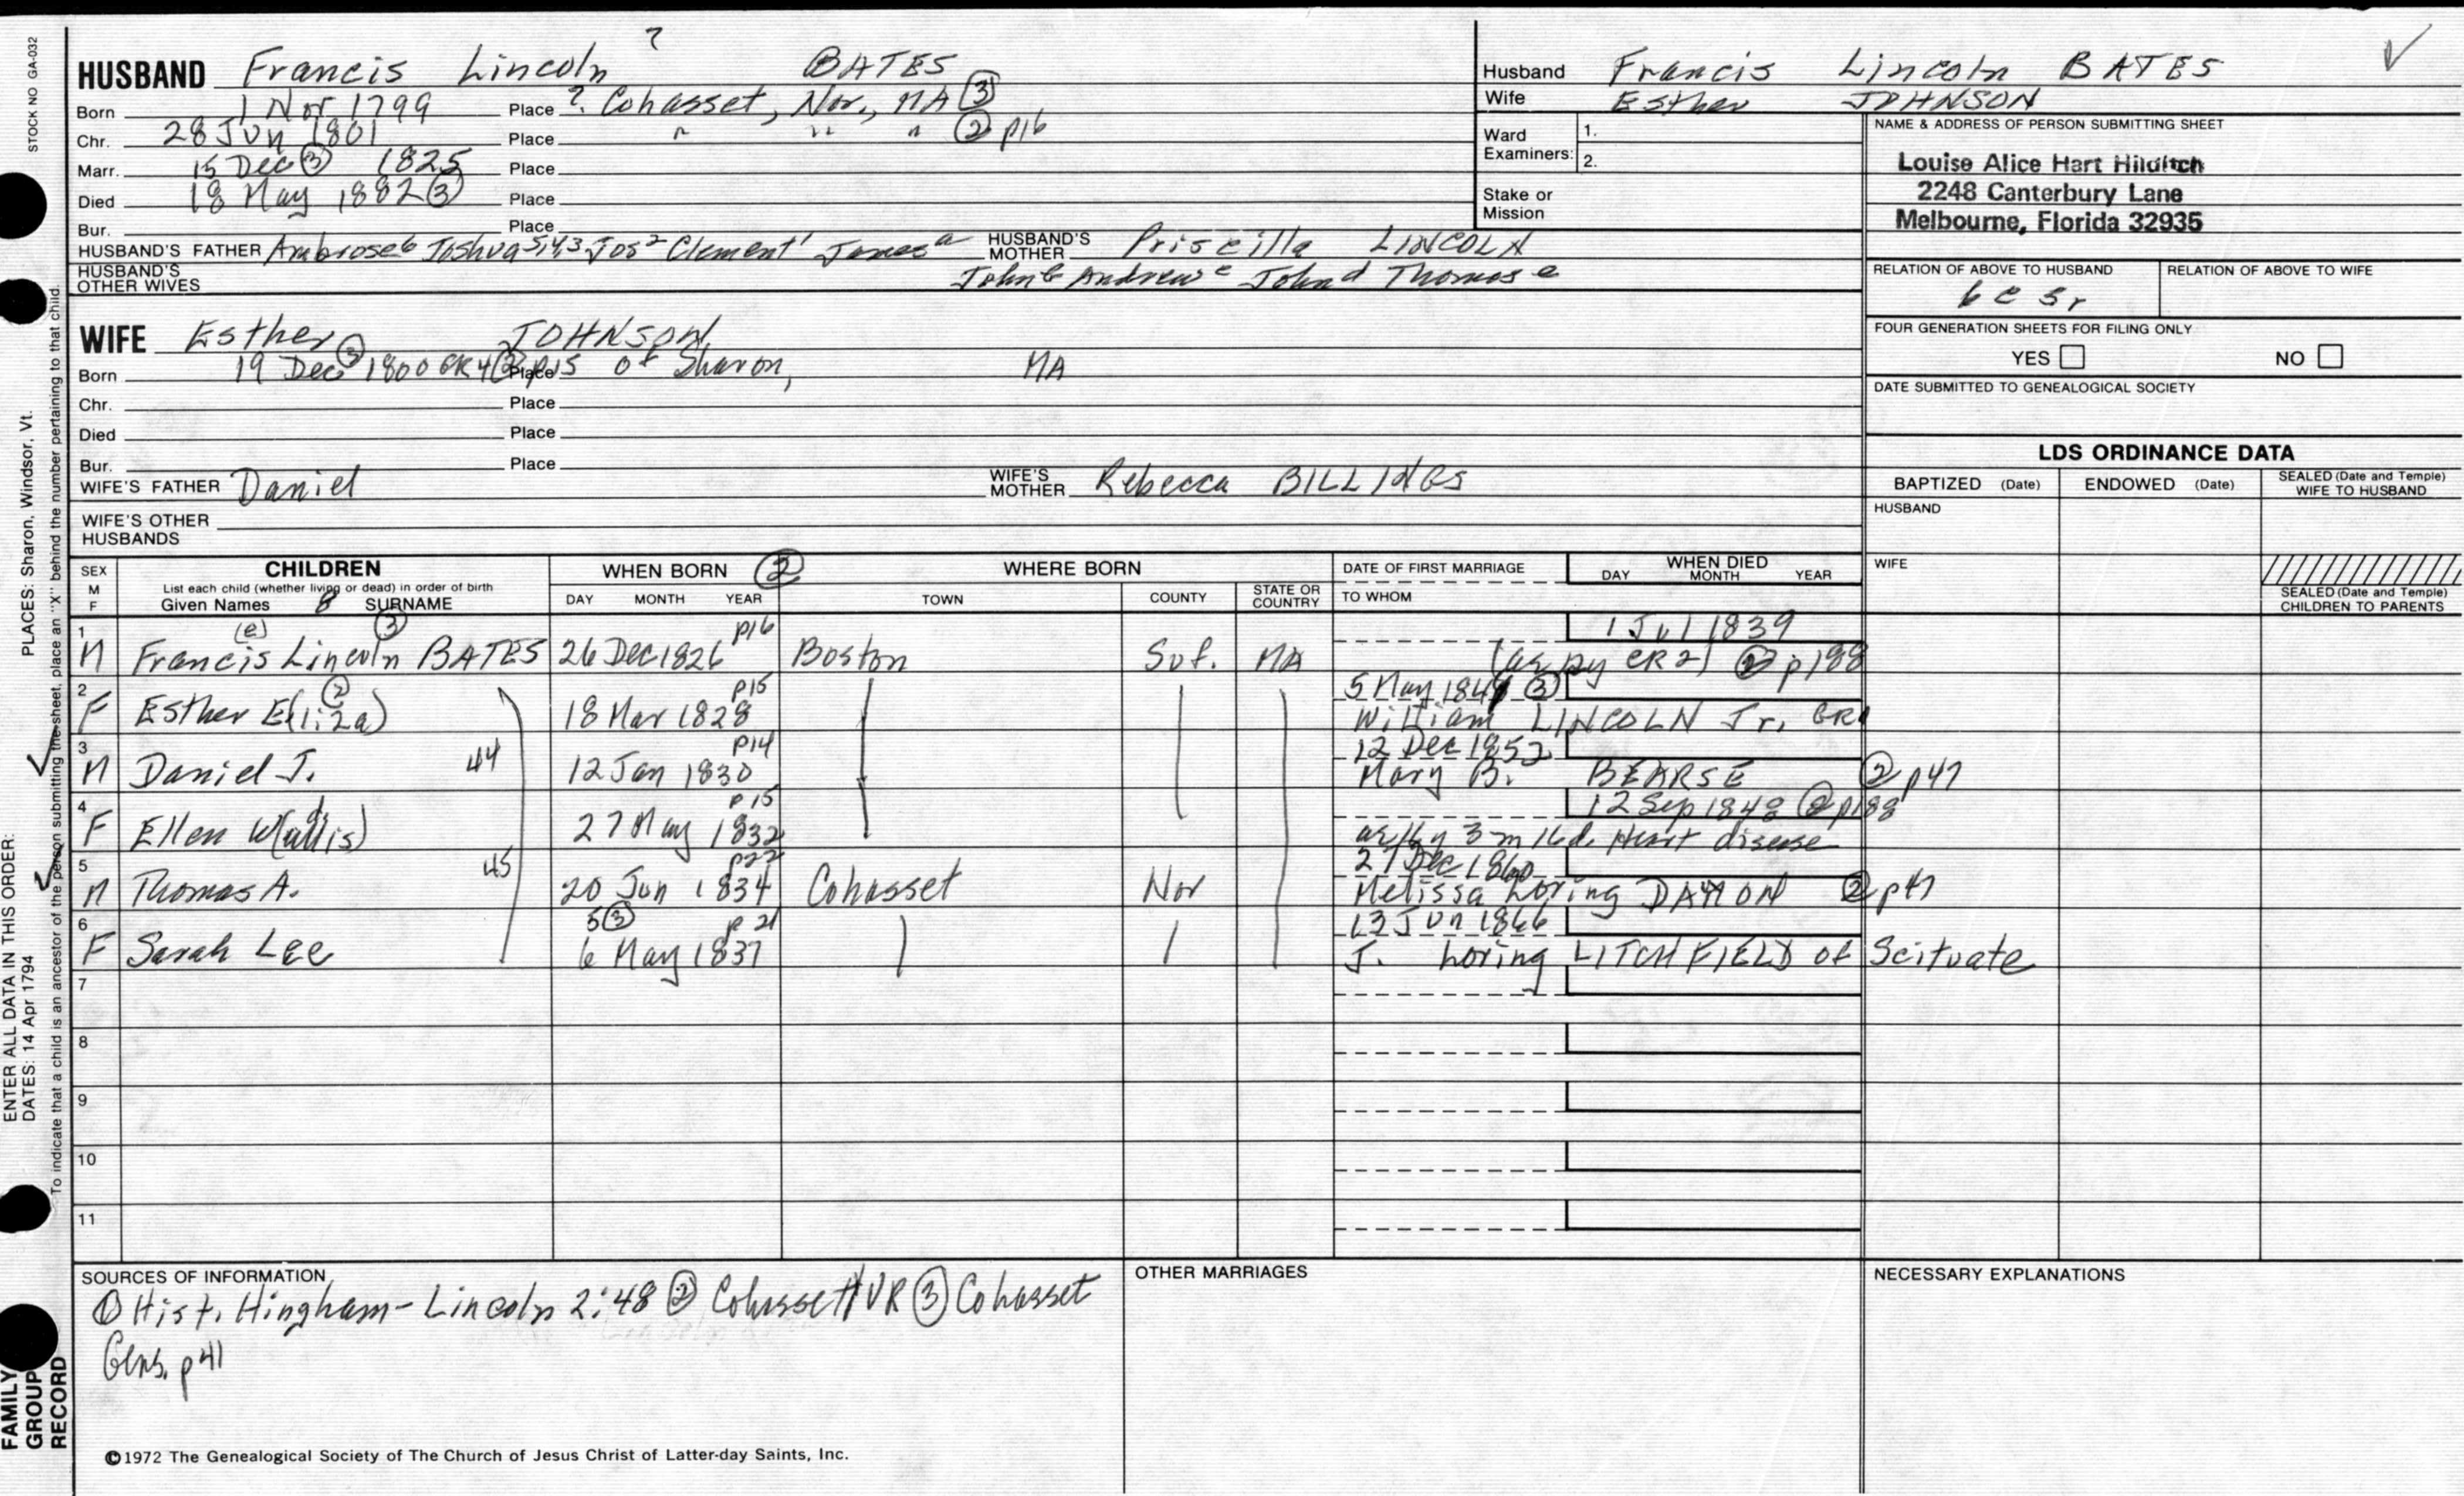 STOCK NO GA-032
?
HUSBAND Francis Lincoln BATES
Born 1 Nov 1799 Place ? Cohasset, Nor., MA ③
Chr. 28 Jun 1801 Place " " " ② p16
Marr. 15 Dec ③ 1825 Place
Died 18 May 1882 ③ Place
Bur. Place
HUSBAND'S FATHER Ambrose6 Joshua5,4,3 Jos2 Clement1 James a HUSBAND'S MOTHER Priscilla LINCOLN
HUSBAND'S OTHER WIVES John b Andrew c John d Thomas e
Husband Francis Lincoln BATES
Wife Esther JOHNSON
Ward Examiners: 1.
2.
Stake or Mission
NAME & ADDRESS OF PERSON SUBMITTING SHEET
Louise Alice Hart Hilditch
2248 Canterbury Lane
Melbourne, Florida 32935
RELATION OF ABOVE TO HUSBAND RELATION OF ABOVE TO WIFE
6 c 5 r
FOUR GENERATION SHEETS FOR FILING ONLY
YES NO
DATE SUBMITTED TO GENEALOGICAL SOCIETY
WIFE Esther JOHNSON
Born 19 Dec ③ 1800 GR4 ② p15 Place of Sharon, MA
Chr. Place
Died Place
Bur. Place
WIFE'S FATHER Daniel WIFE'S MOTHER Rebecca BILLINGS
WIFE'S OTHER HUSBANDS
LDS ORDINANCE DATA
BAPTIZED (Date) ENDOWED (Date) SEALED (Date and Temple) WIFE TO HUSBAND
HUSBAND
WIFE
SEALED (Date and Temple) CHILDREN TO PARENTS
SEX M F CHILDREN WHEN BORN ② WHERE BORN DATE OF FIRST MARRIAGE WHEN DIED
List each child (whether living or dead) in order of birth DAY MONTH YEAR
Given Names 8 SURNAME DAY MONTH YEAR TOWN COUNTY STATE OR COUNTRY TO WHOM
1 (e) ③ p16 1 Jul 1839
M Francis Lincoln BATES 26 Dec 1826 Boston Suf. MA (as py CR2) ② p188
2 ② p15 5 May 184 ③
F Esther E(liza) 18 Mar 1828 William LINCOLN Jr.
3 44 p14 12 Dec 1852
M Daniel J. 12 Jan 1830 Mary B. BEARSE ② p47
4 p15 12 Sep 1848 ② p188
F Ellen W(allis) 27 May 1832 3 m 16 d. Heart disease
5 45 p22 27 Dec 1860
M Thomas A. 20 Jun 1834 Cohasset Nor Melissa Loring DAMON ② p47
6 5③ p21 13 Jun 1866
F Sarah Lee 6 May 1837 J. Loring LITCHFIELD of Scituate
7
8
9
10
11
SOURCES OF INFORMATION
① Hist. Hingham - Lincoln 2:48 ② Cohasset VR ③ Cohasset
Gens. p41
OTHER MARRIAGES
NECESSARY EXPLANATIONS
©1972 The Genealogical Society of The Church of Jesus Christ of Latter-day Saints, Inc.
ENTER ALL DATA IN THIS ORDER:
DATES: 14 Apr 1794 PLACES: Sharon, Windsor, Vt.
To indicate that a child is an ancestor of the person submitting the sheet, place an "X" behind the number pertaining to that child.
FAMILY
GROUP
RECORD